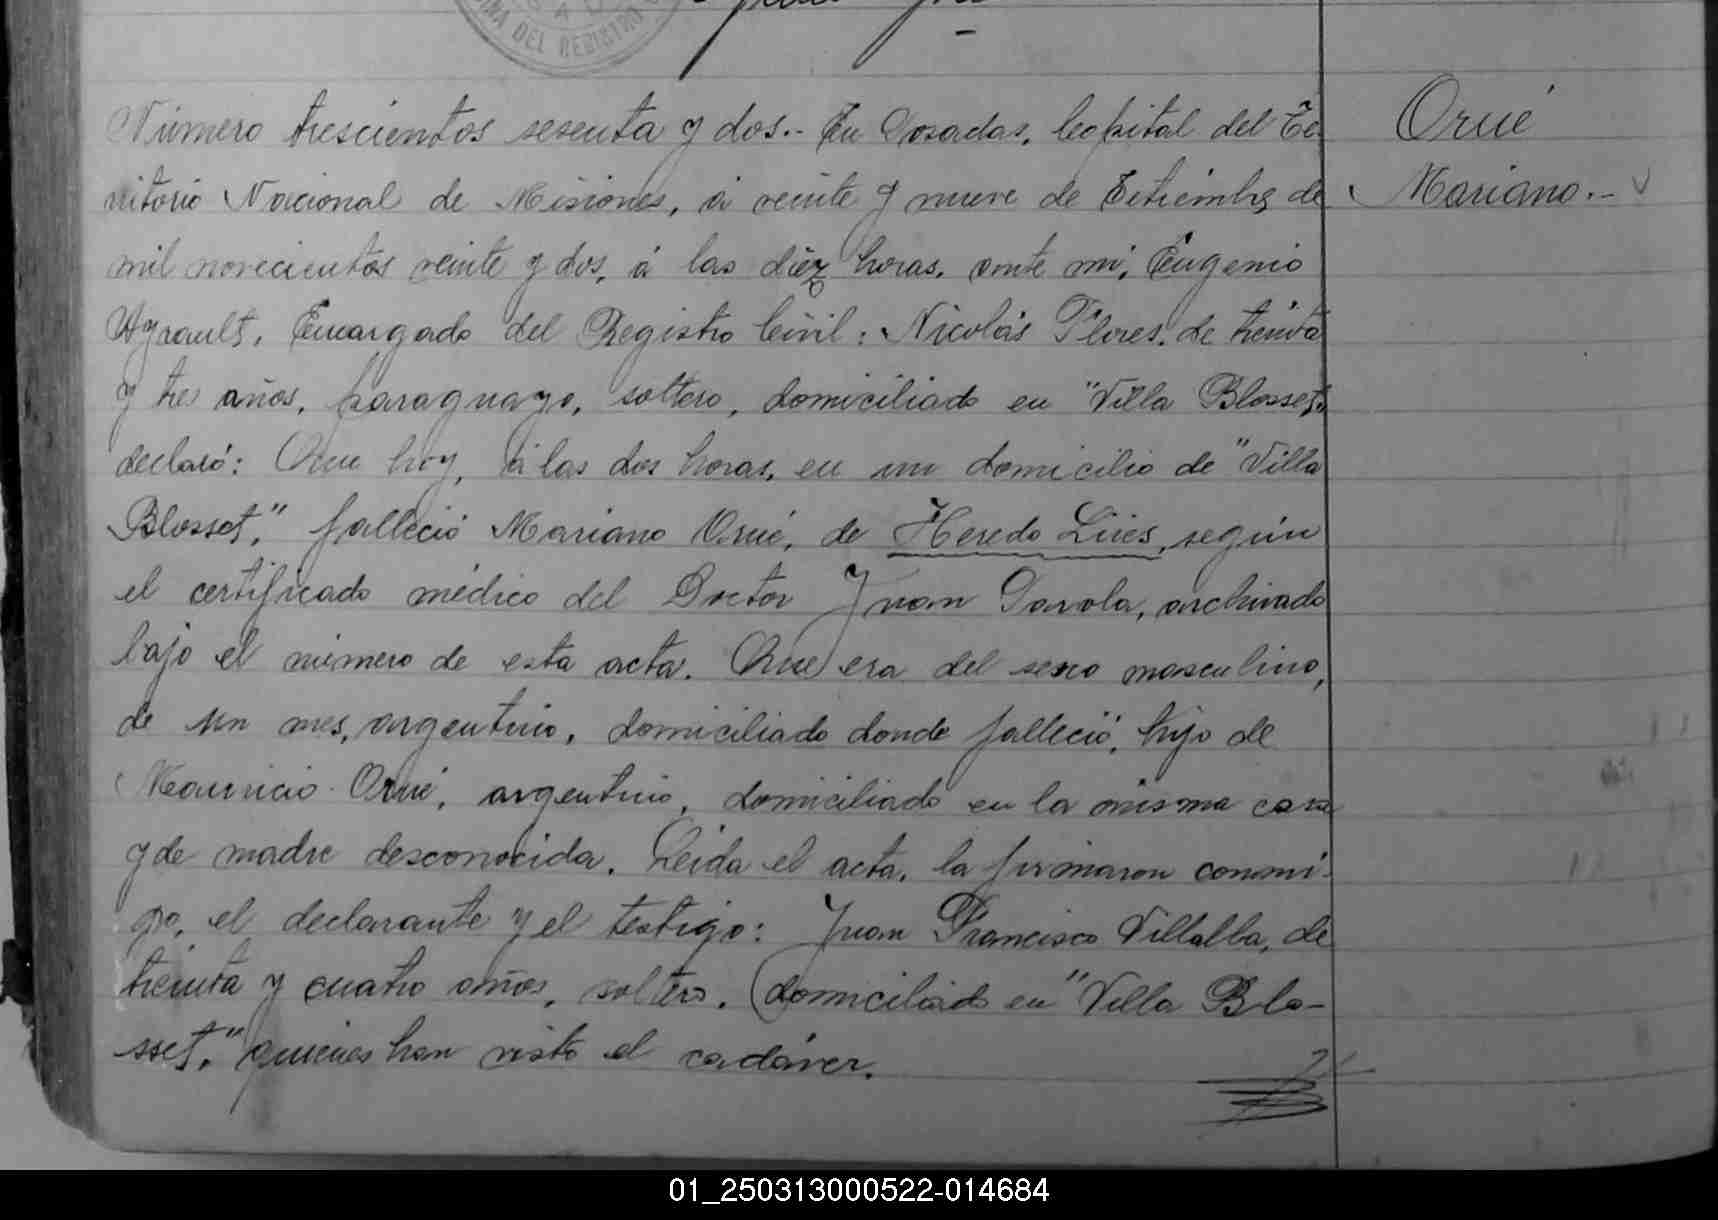 DEL REGISTRO
Número trescientos sesenta y dos.- En Posadas, Capital del Te-
rritorio Nacional de Misiones, á veinte y nueve de Setiembre de
mil novecientos veinte y dos, á las diez horas, ante mí, Eugenio
Ayrault, Encargado del Registro Civil: Nicolás Flores, de treinta
y tres años, paraguayo, soltero, domiciliado en "Villa Blosset,"
declaró: Que hoy, á las dos horas, en un domicilio de "Villa
Blosset," falleció Mariano Orué, de Heredo Lúes, según
el certificado médico del Doctor Juan Parola, archivado
bajo el número de esta acta. Que era del sexo masculino,
de un mes, argentino, domiciliado donde falleció, hijo de
Mauricio Orué, argentino, domiciliado en la misma casa
y de madre desconocida. Leida el acta, la firmaron conmi-
go, el declarante y el testigo: Juan Francisco Villalba, de
treinta y cuatro años, soltero, domiciliado en "Villa Blo-
sset," quienes han visto el cadáver.
Orué
Mariano.-
01_250313000522-014684